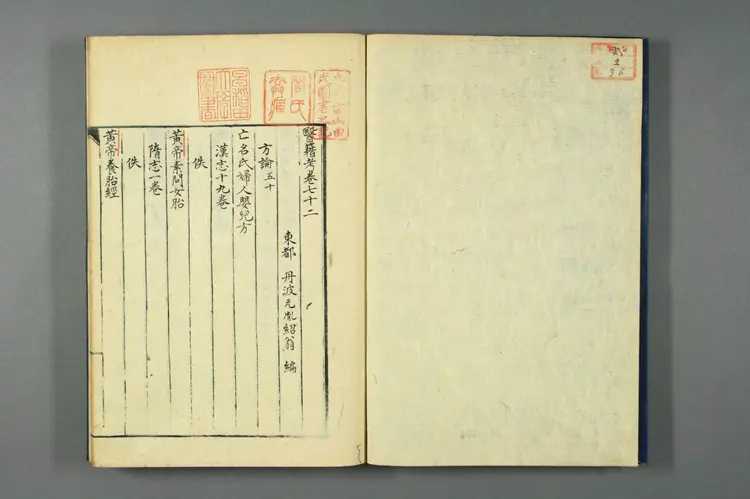 醫籍考卷七十二
東都 丹波元胤紹翁 編
方論五十
亡名氏婦人嬰兒方
漢志十九卷
佚
黃帝素問女胎
隋志一卷
佚
黃帝養胎經